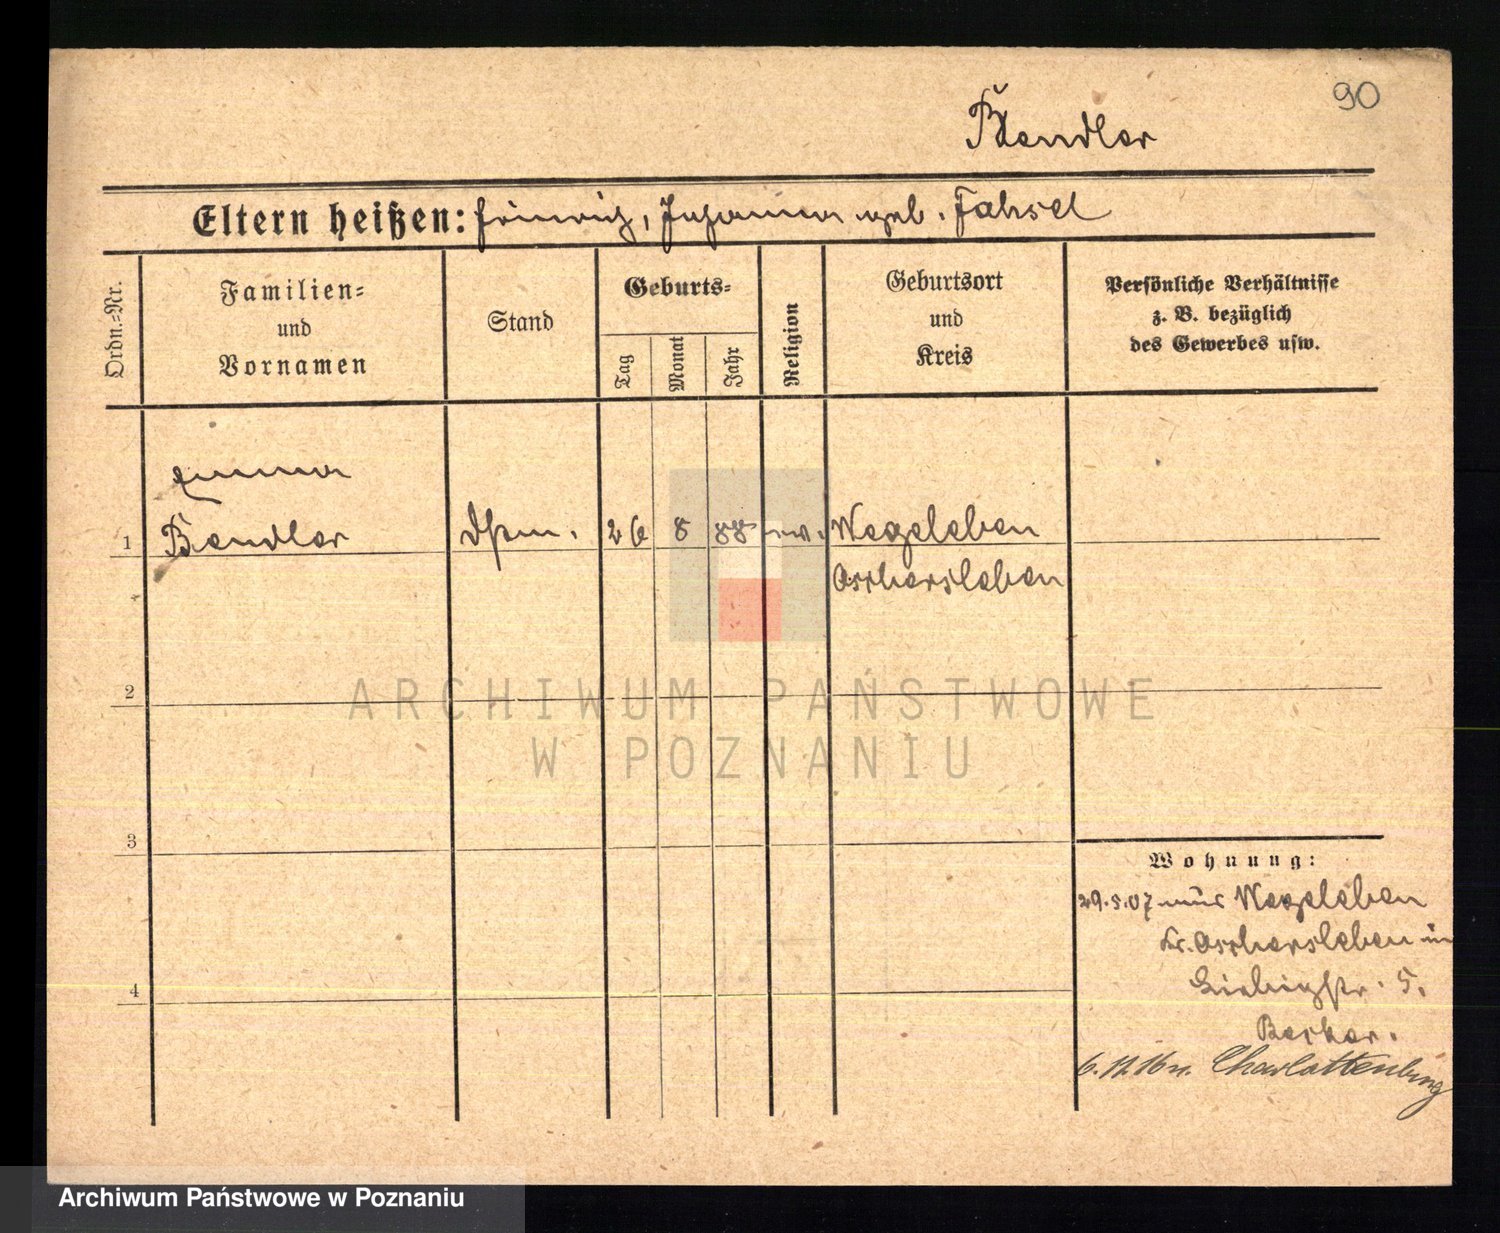 90
Bendler
Eltern heißen: Heinrich, Johanna geb. Fahsel
Ordn.=Nr.
Familien=
und
Vornamen
Stand
Geburts=
Tag
Monat
Jahr
Religion
Geburtsort
und
Kreis
Persönliche Verhältnisse
z. B. bezüglich
des Gewerbes usw.
Emma
1 Bendler 26 8 88 ev. Wegeleben
Oschersleben
2
3
4
Wohnung:
29.5.07 aus Wegeleben
Kr. Oschersleben in
Liebigstr. 5.
6.12.16 n. Charlottenburg
ARCHIWUM PAŃSTWOWE
W POZNANIU
Archiwum Państwowe w Poznaniu